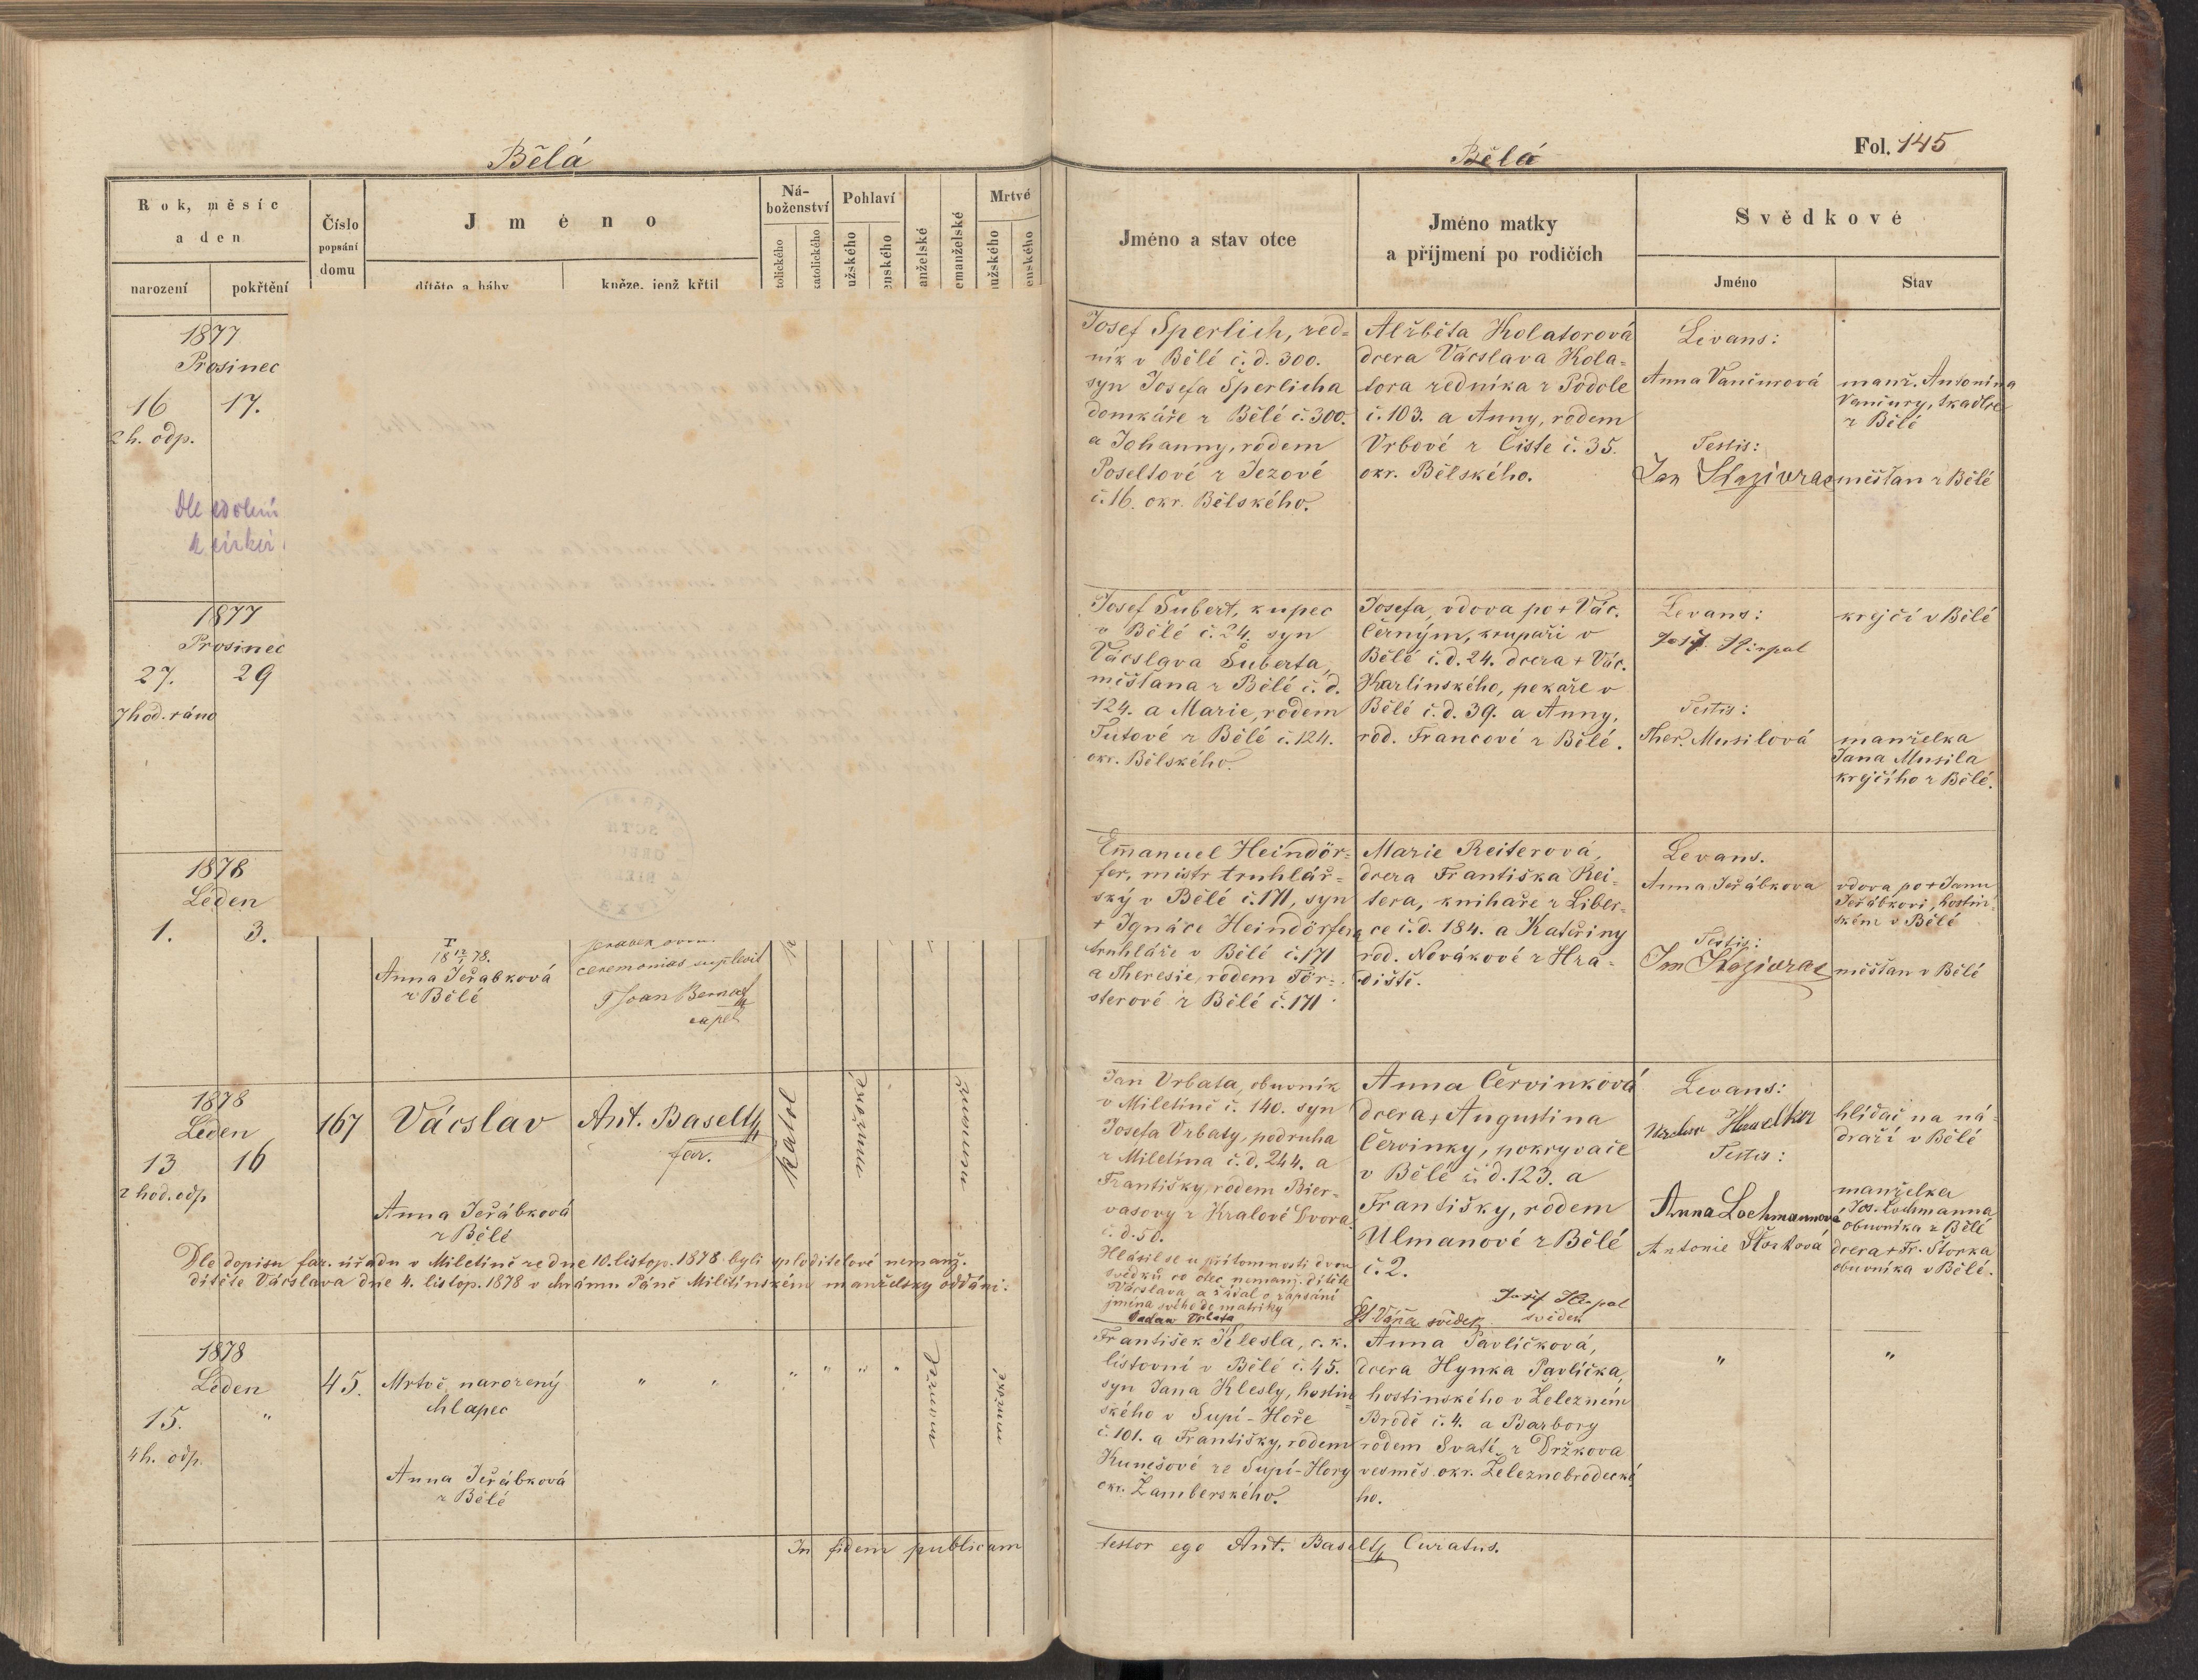 Bělá
Rok, měsíc
a den
narození
pokřtění
Číslo
popsání
domu
Jméno
dítěte a báby
kněze, jenž křtil
Ná-
boženství
tolického
katolického
Pohlaví
užského
enského
anželské
emanželské
Mrtvé
užského
enského
1877
Prosinec
16
17.
2 h. odp.
1877
Prosinec
27.
29
7 hod. ráno
1878
Leden
1.
3.
18 12/1 78.
Anna Jeřábková
z Bělé
ceremonias suplevit
capel
1878
Leden
13
16
2 hod. odp
167
Vácslav
Anna Jeřábková
z Bělé
Ant. Baselt
far.
katol
Dle dopisu far. úřadu v Miletíně ze dne 10. listop. 1878 byli zploditelové nemanž.
dítěte Vácslava dne 4. listop. 1878 v chrámu Páně Miletínském manželsky oddáni.
1878
Leden
15.
"
4 h. odp.
45.
Mrtvě narozený
chlapec
Anna Jeřábková
z Bělé
" " " " " "
In fidem publicam
Bělá
Fol. 145
Jméno a stav otce
Jméno matky
a příjmení po rodičích
Svědkové
Jméno
Stav
Josef Šperlich, zed-
ník v Bělé č. d. 300.
syn Josefa Šperlicha
domkáře z Bělé č. 300.
a Johanny, rodem
Poseltové z Jezové
č. 16. okr. Bělského.
Alžběta Kolatorová
dcera Vácslava Kola-
tora zedníka z Podole
č. 103. a Anny, rodem
Vrbové z Čiste č. 35.
okr. Bělského.
Levans:
Anna Vančurová
manž. Antonína
Vančury, tkadlce
z Bělé
Testis:
Jan
měšťan z Bělé
Josef Šubert, kupec
v Bělé č. 24. syn
Vácslava Šuberta,
měšťana z Bělé č. d.
124. a Marie, rodem
Tutové z Bělé č. 124.
okr. Bělského.
Josefa, vdova po + Vác.
Černým, krupaři v
Bělé č. d. 24. dcera + Vác.
Karlínského, pekaře v
Bělé č. d. 39. a Anny,
rod. Francové z Bělé.
Levans:
Josef Kirpal
krejčí v Bělé
Testis:
Ther. Musilová
manželka
Jana Musila
krejčího z Bělé.
Emanuel Heindör-
fer, mistr truhlář-
ský v Bělé č. 171, syn
+ Ignáce Heindörfera
truhláře v Bělé č. 171
a Theresie, rodem För-
sterové z Bělé č. 171.
Marie Reiterová,
dcera Františka Rei-
tera, knihaře z Liber-
ce č. d. 184. a Kateřiny
rod. Novákové z Hra-
diště.
Levans.
Anna Jeřábkova
vdova po + Janu
Jeřábkovi, hostin-
ském v Bělé
Testis:
měšťan v Bělé
Jan Vrbata, obuvník
v Miletíně č. 140. syn
Josefa Vrbaty, podruha
z Miletína č. d. 244. a
Františky, rodem Bier-
vasovy z Kralové Dvora
č. d. 50.
Hlásil se u přítomnosti dvou
svědků co otec nemanž. dítěte
Vácslava a žádal o zapsání
jména svého do matriky
Vrbata
Anna Červinková
dcera + Augustina
Červinky, pokryvače
v Bělé č. d. 123. a
Františky, rodem
Ulmanové z Bělé
č. 2.
Váňa svědek
Josef Kirpal
svědek
Levans:
hlídač na ná-
draží v Bělé
Testis:
Anna Lochmannova
manželka
Jos. Lochmanna
obuvníka z Bělé
Antonie Štorková
dcera + Fr. Štorka
obuvníka v Bělé.
František Klesla, c. k.
listovní v Bělé č. 45.
syn Jana Klesly, hostin-
ského v Supí-Hoře
č. 101. a Františky, rodem
Kunešové ze Supí-Hory
okr. Žamberského.
Anna Pavlíčková,
dcera Hynka Pavlíčka,
hostinského v Železném
Brodě č. 4. a Barbory
rodem Svaté z Držkova
vesměs okr. Železnobrodecké-
ho.
"
"
testor ego Ant. Baselt Curatus.